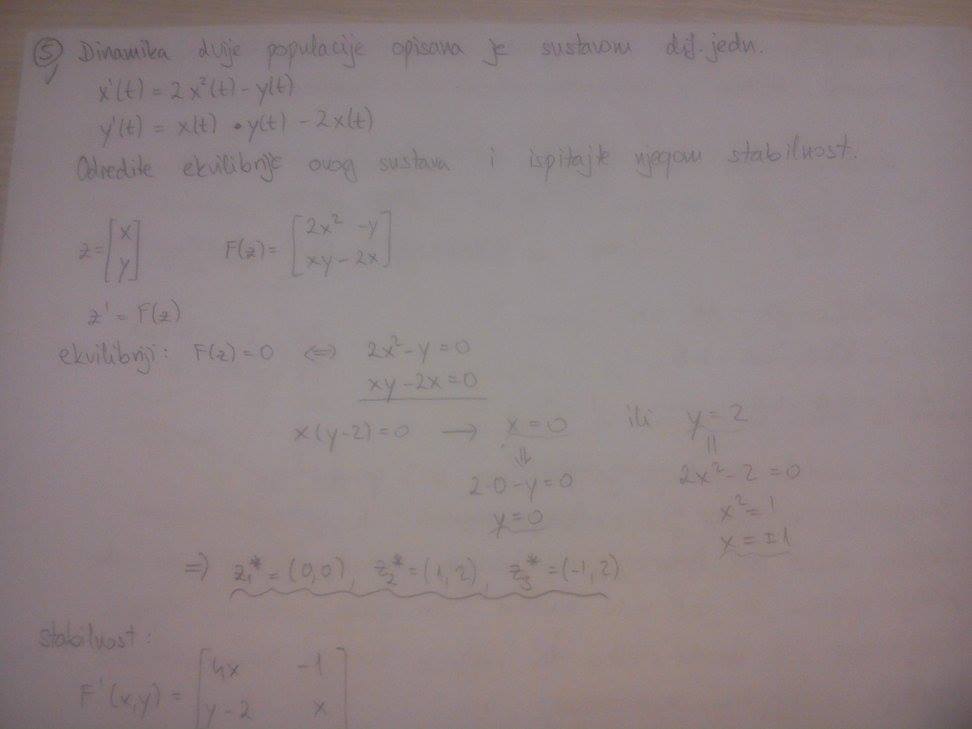 5) Dinamika dvije populacije opisana je sustavom dif. jedn.
x'(t) = 2x²(t) - y(t)
y'(t) = x(t) • y(t) - 2x(t)
Odredite ekvilibrije ovog sustava i ispitajte njegovu stabilnost.
z = [x y] F(z) = [2x² - y xy - 2x]
z' = F(z)
ekvilibriji: F(z) = 0 ⇔ 2x² - y = 0
xy - 2x = 0
x(y-2) = 0 → x = 0 ili y = 2
⇓ ||
2·0 - y = 0 2x² - 2 = 0
y = 0 x² = 1
x = ±1
⇒ z₁* = (0,0), z₂* = (1,2), z₃* = (-1,2)
stabilnost:
F'(x,y) = [4x -1 y-2 x]